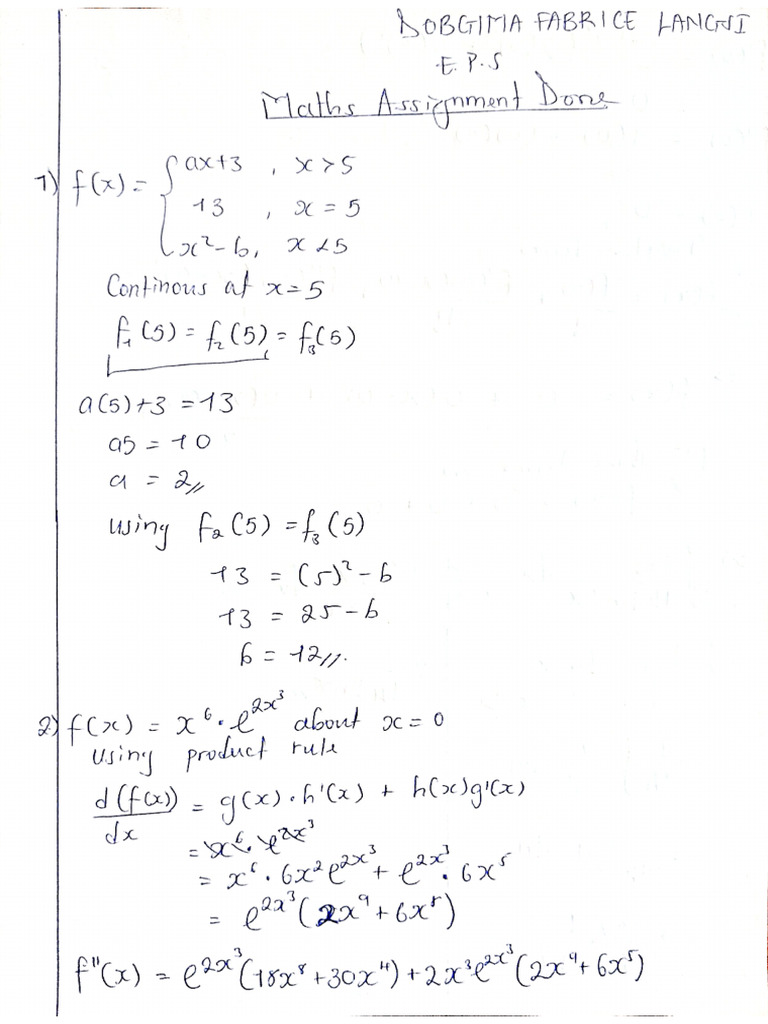 DOBGIMA FABRICE LANGSI
E.P.S
Maths Assignment Done
1) f(x) = { ax+3 , x > 5
13 , x = 5
x² - b, x < 5
Continous at x = 5
f₁(5) = f₂(5) = f₃(5)
a(5)+3 = 13
a5 = 10
a = 2//
using f₂(5) = f₃(5)
13 = (5)² - b
13 = 25 - b
b = 12//.
2) f(x) = x⁶ · e^{2x³} about x = 0
using product rule
d(f(x))/dx = g(x)·h'(x) + h(x)g'(x)
= x⁶· e^{2x³}
= x⁶ · 6x² e^{2x³} + e^{2x³} · 6x⁵
= e^{2x³}(2x⁹ + 6x⁵)
f''(x) = e^{2x³}(18x⁸ + 30x⁴) + 2x³e^{2x³}(2x⁹ + 6x⁵)